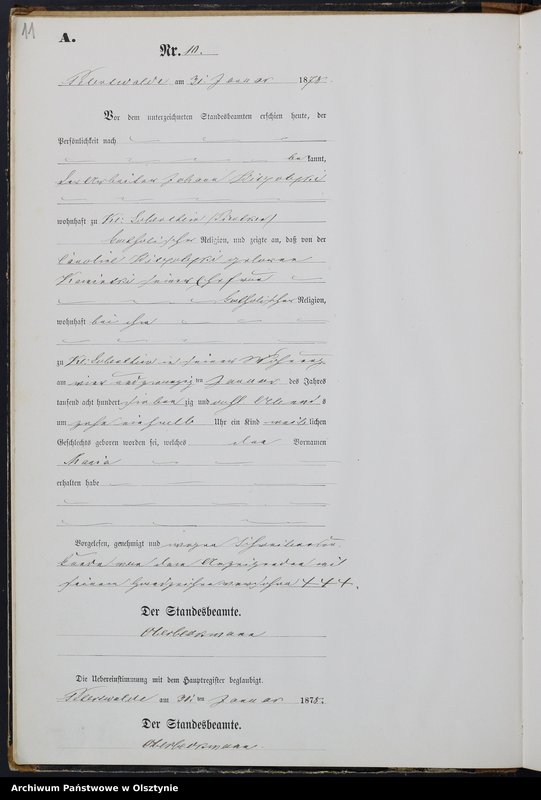 11
A.
Nr. 10.
am 31. Januar 1878.
Vor dem unterzeichneten Standesbeamten erschien heute, der
Persönlichkeit nach
be kannt,
der Arbeiter Johann
wohnhaft zu Kl:
katholischer Religion, und zeigte an, daß von der
Caroline geborene
seiner Ehefrau
katholischer Religion,
wohnhaft bei ihm
zu Kl: in seiner Wohnung
am vier und zwanzig ten Januar des Jahres
tausend acht hundert sieben zig und acht Abends
um zehn einhalb Uhr ein Kind weib lichen
Geschlechts geboren worden sei, welches den Vornamen
Maria
erhalten habe
Vorgelesen, genehmigt und wegen Schreibensun-
kunde von dem Anzeigenden mit
seinem Handzeichen versehen + + +.
Der Standesbeamte.
Die Uebereinstimmung mit dem Hauptregister beglaubigt.
am 31 ten Januar 1878.
Der Standesbeamte.
Archiwum Państwowe w Olsztynie